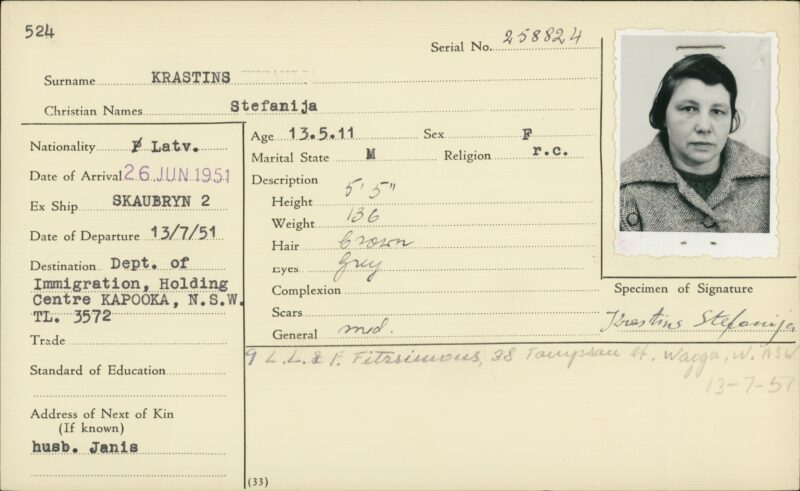 524
Serial No. 258824
Surname KRASTINS
Christian Names Stefanija
Nationality Latv.
Date of Arrival 26 JUN 1951
Ex Ship SKAUBRYN 2
Date of Departure 13/7/51
Destination Dept. of
Immigration, Holding
Centre KAPOOKA, N.S.W.
TL. 3572
Trade
Standard of Education
Address of Next of Kin
(If known)
husb. Janis
Age 13.5.11 Sex F
Marital State M Religion r.c.
Description
Height 5' 5"
Weight 136
Hair brown
Eyes grey
Complexion
Scars
General med.
Specimen of Signature
Krastins Stefanija
L.L. & P. Fitzsimons, 38 St. Wagga, W. NSW
13-7-51
(33)